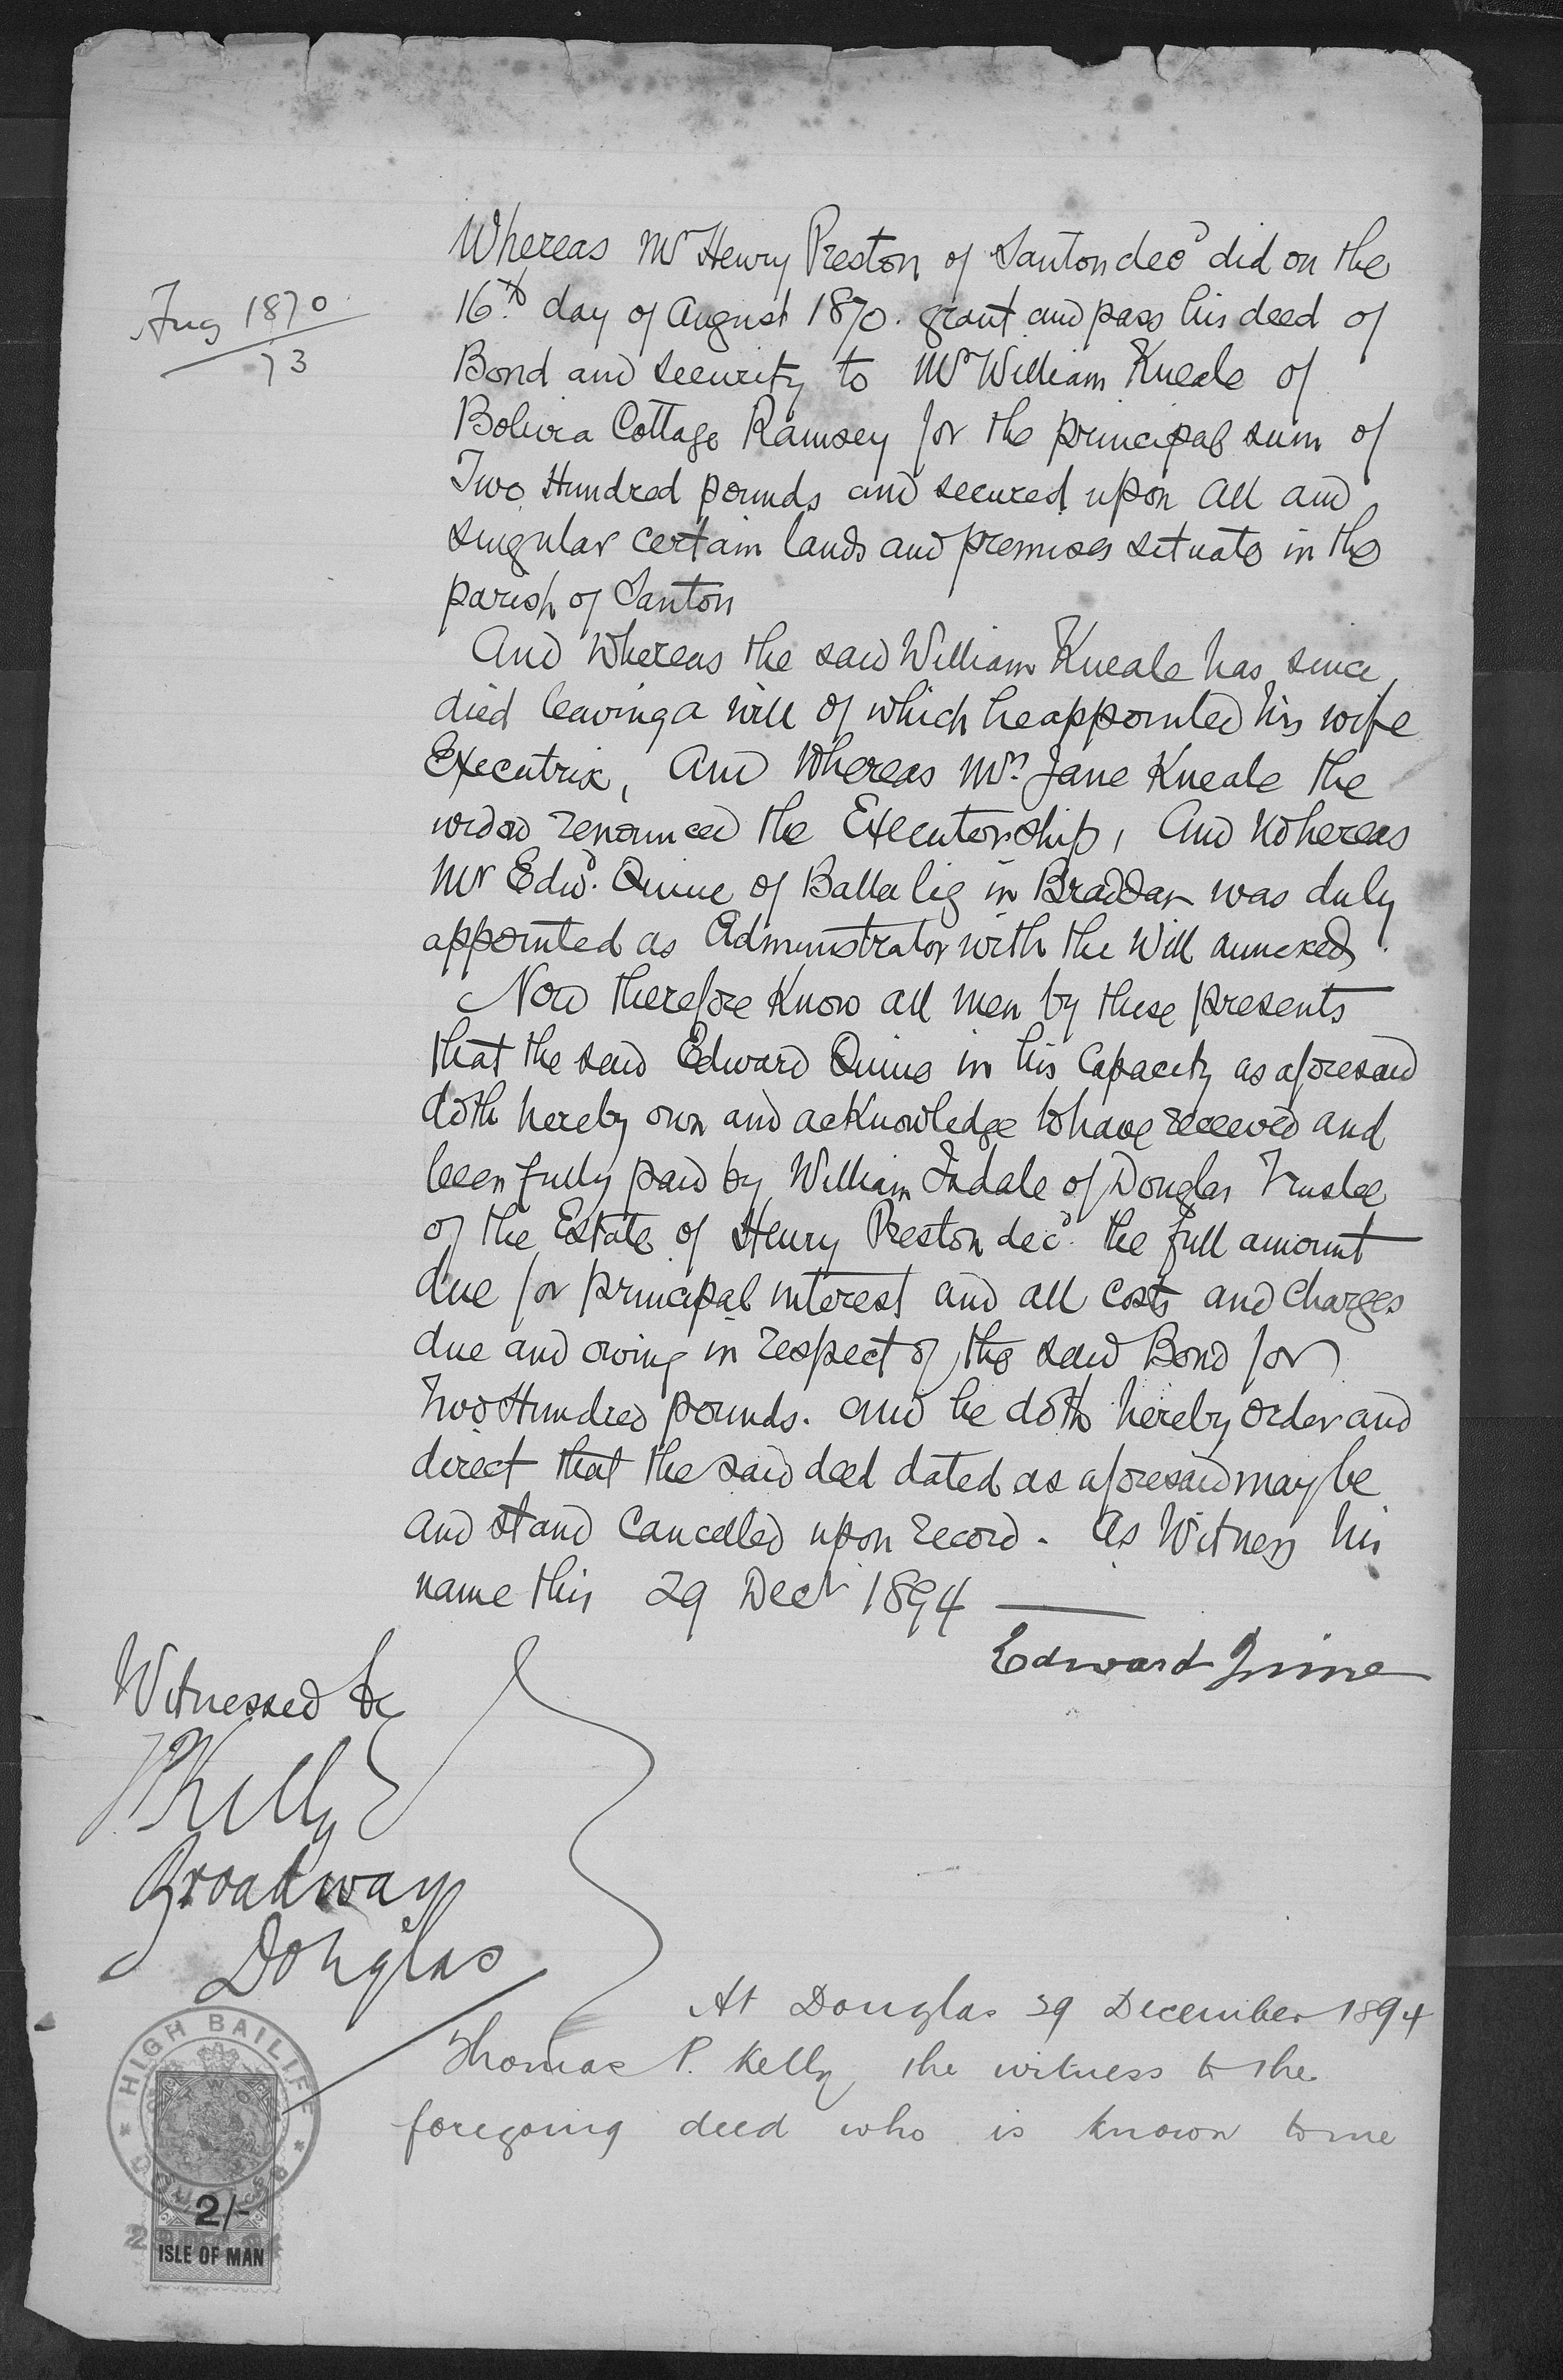 Aug 1870
73
Whereas Mr Henry Preston of Santon decd did on the
16th day of August 1870. grant and pass his deed of
Bond and security to Mr William Kneale of
Bolivia Cottage Ramsey for the principal sum of
Two Hundred pounds and secured upon all and
singular certain lands and premises situate in the
parish of Santon
And Whereas the said William Kneale has since
died leaving a will of which he appointed his wife
Executrix, And Whereas Mrs Jane Kneale the
widow renounced the Executorship, And Whereas
Mr Edwd. Quine of Ballalig in Braddan was duly
appointed as Administrator with the Will annexed.
Now therefore Know all men by these presents
that the said Edward Quine in his Capacity as aforesaid
doth hereby own and acknowledge to have received and
been fully paid by William of Douglas Trustee
of the Estate of Henry Preston decd. the full amount
due for principal interest and all costs and charges
due and owing in respect of the said Bond for
Two Hundred pounds. and he doth hereby order and
direct that the said deed dated as aforesaid may be
and stand Cancelled upon record. As Witness his
name this 29 Decr 1894
Edward Quine
Witnessed by
TPKelly
Broadway
Douglas
At Douglas 29 December 1894
Thomas P. Kelly the witness to the
foregoing deed who is known to me
HIGH BAILIFF
DOUGLAS
2/-
ISLE OF MAN